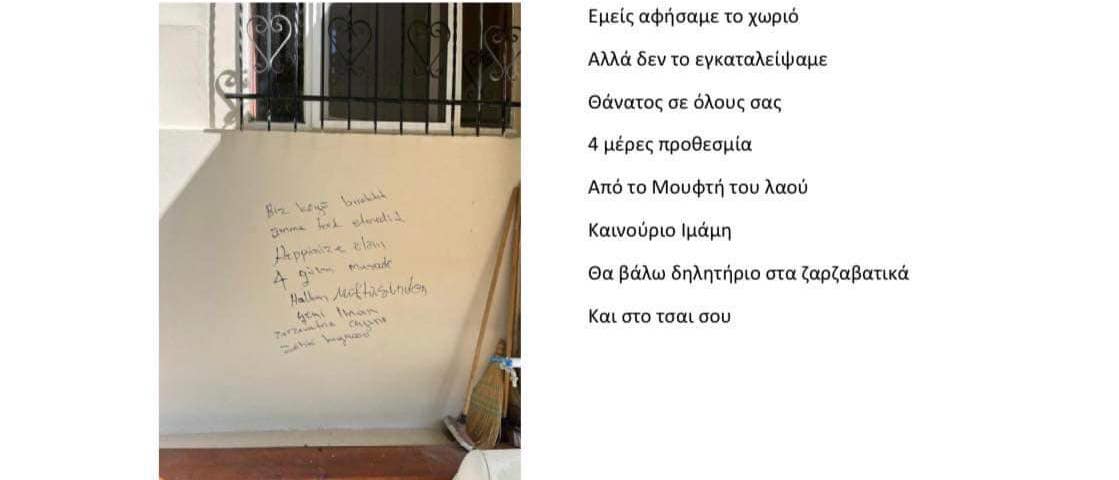 Biz köyü bıraktık
amma terk etmedik
Heppinize ölüm
4 gün
Halkın Müftüsünden
yeni İmam
Εμείς αφήσαμε το χωριό
Αλλά δεν το εγκαταλείψαμε
Θάνατος σε όλους σας
4 μέρες προθεσμία
Από το Μουφτή του λαού
Καινούριο Ιμάμη
Θα βάλω δηλητήριο στα ζαρζαβατικά
Και στο τσαι σου